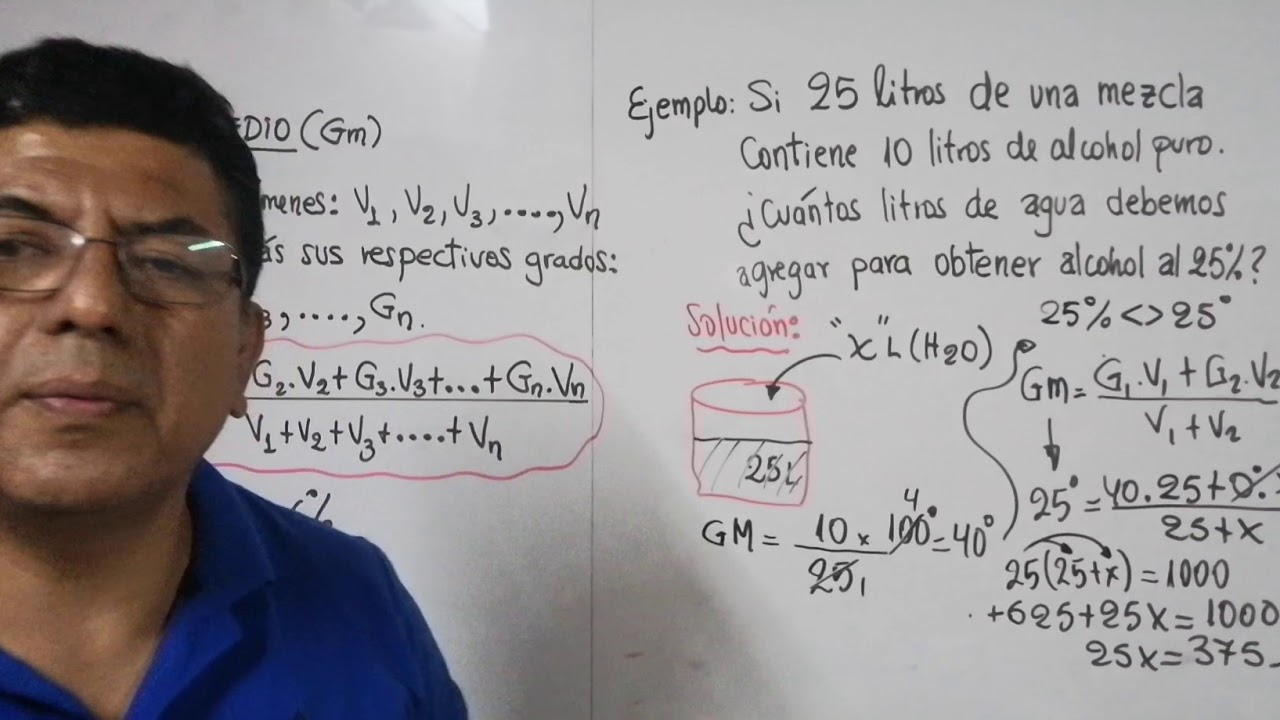 EDIO (Gm)
menes: V₁, V₂, V₃, ...., Vₙ
ás sus respectivos grados:
₃, ...., Gₙ.
G₂.V₂+G₃.V₃+...+Gₙ.Vₙ
V₁+V₂+V₃+....+Vₙ
%
Ejemplo: Si 25 litros de una mezcla
Contiene 10 litros de alcohol puro.
¿Cuántos litros de agua debemos
agregar para obtener alcohol al 25%?
Solución:
"X" L (H2O)
25L
GM = 10 x 100° = 40°
25 1
4
25% <> 25°
Gm = G₁.V₁ + G₂.V₂
V₁ + V₂
25° = 40.25+0°.
25+x
25(25+x) = 1000
+625+25x = 1000
25x = 375